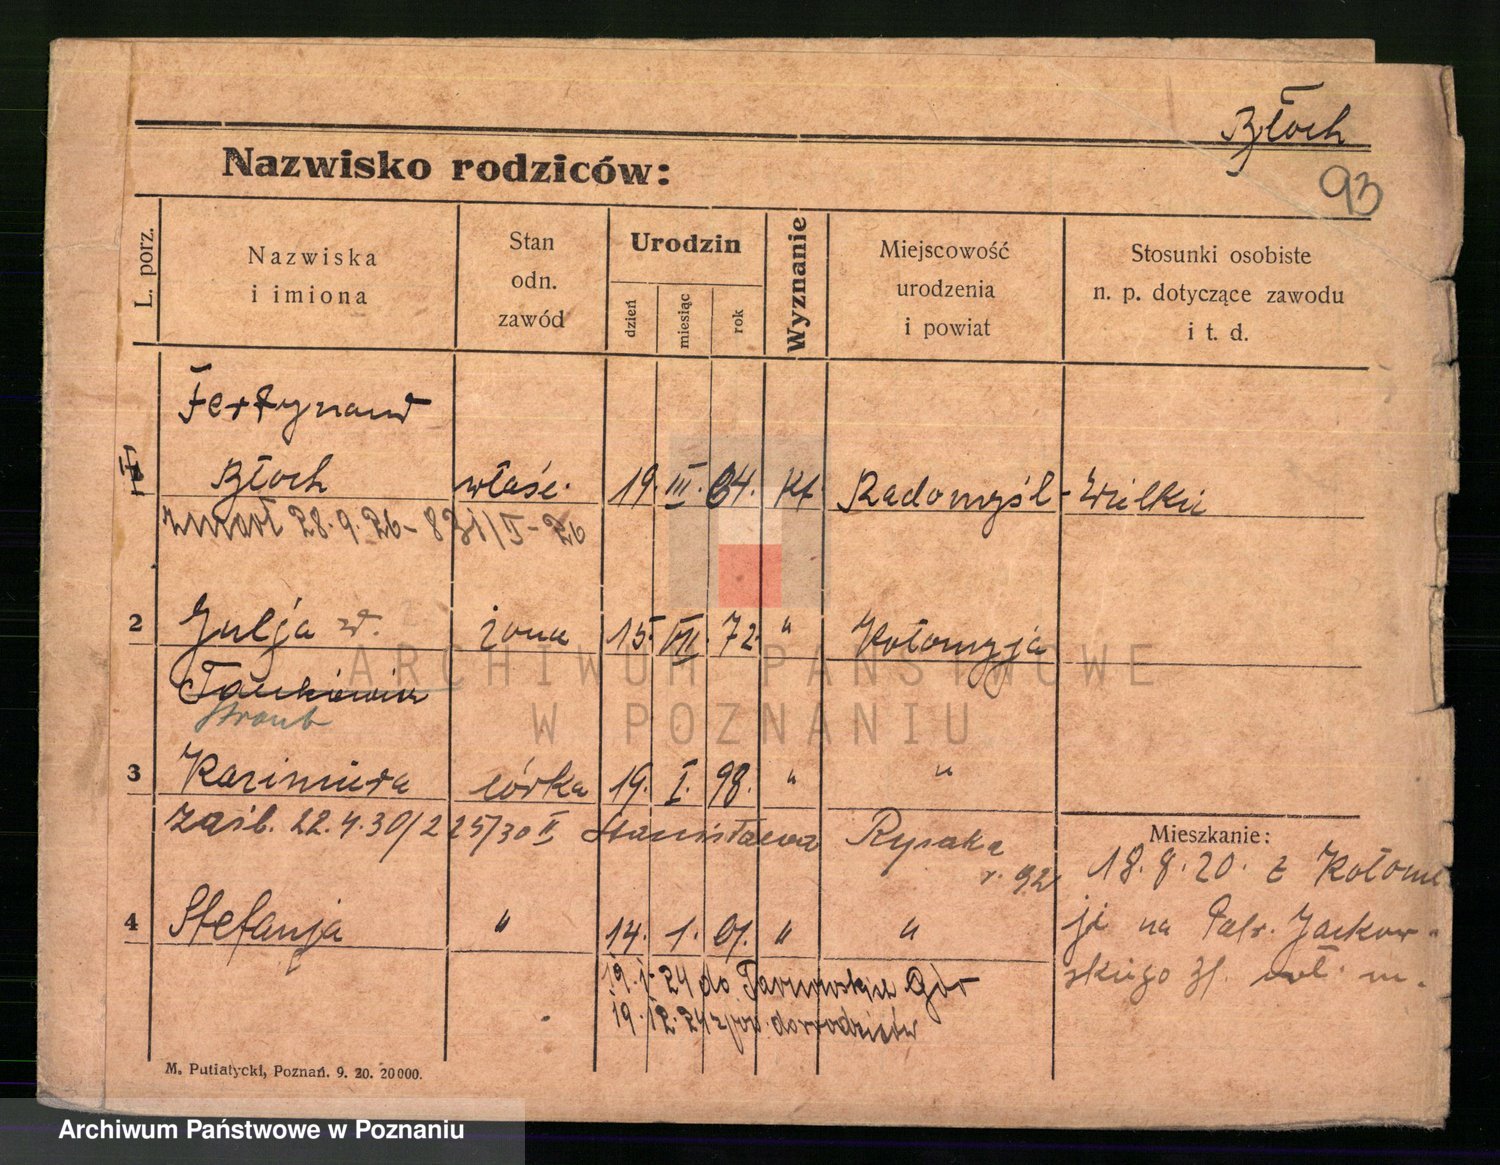 Błoch
93
Nazwisko rodziców:
L. porz.
Nazwiska
i imiona
Stan
odn.
zawód
Urodzin
dzień
miesiąc
rok
Wyznanie
Miejscowość
urodzenia
i powiat
Stosunki osobiste
n. p. dotyczące zawodu
i t. d.
Ferdynand
1 Błoch właśc. 19. III. 64. kt. Radomyśl-Wielki
zmarł 28.9.26-831/I-26
2 Julja żona 15. VII. 72. " Kołomyja
Tankiewicz
Straub
3 Kazimiera córka 19. I. 98. " "
zaśl. 22.4.30/225/30 II Stanisława Rysaka
r. 92
Mieszkanie:
18.8.20. z Kołomy
ji na Jackow-
skiego 31. m.
4 Stefanja " 14. 1. 01. " "
19.1.24 do Tarnowskie Gór
19.12.24 do rodziców
M. Putiatycki, Poznań. 9. 20. 20000.
ARCHIWUM PAŃSTWOWE
W POZNANIU
Archiwum Państwowe w Poznaniu